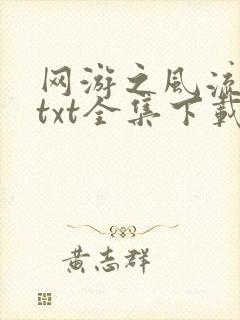 网游之风流
txt全集下载
黄志群